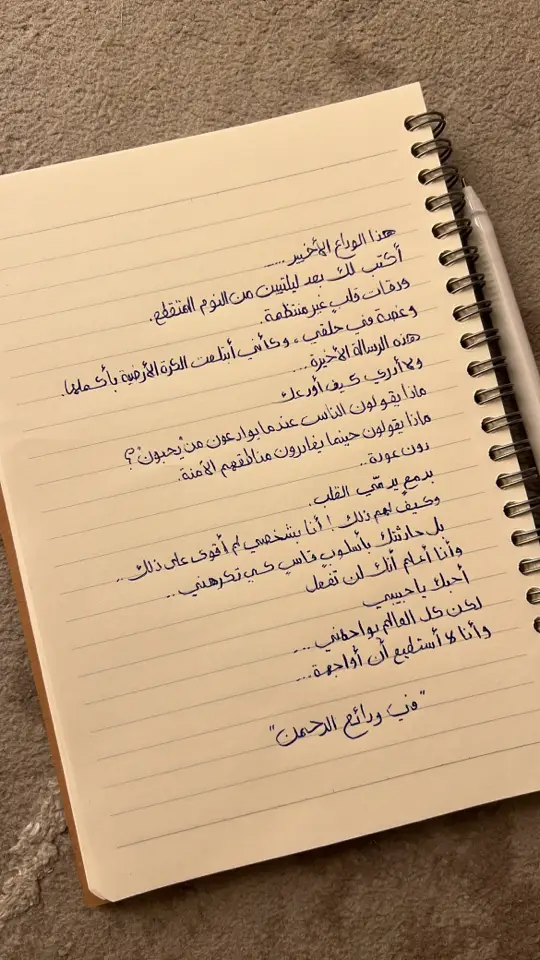 هذا الوداع الأخير.....
أكتب لك بعد ليلتين من النوم المتقطع.
ودقات قلبٍ غير منتظمة.
وغصة في حلقي، وكأنني أبتلعت الكرة الأرضية بأكملها.
هذه الرسالة الأخيرة...
ولا أدري كيف أودعك
ماذا يقولون الناس عندما يوادعون من يُحبونْ؟
ماذا يقولون حينما يغادرون مناطقهم الآمنة.
دون عودة..
بدمع يدمّي القلب.
وكيف لهم ذلك! أنا بشخصي لم أقوى على ذلك..
بل حادثتك بأسلوبٍ قاسٍ كي تكرهني..
وأنا أعلم أنك لن تفعل
أحبك يا حبيبي
لكن كل العالم يواجهني...
وأنا لا أستطيع أن أواجهة...
"في ودائع الرحمن"